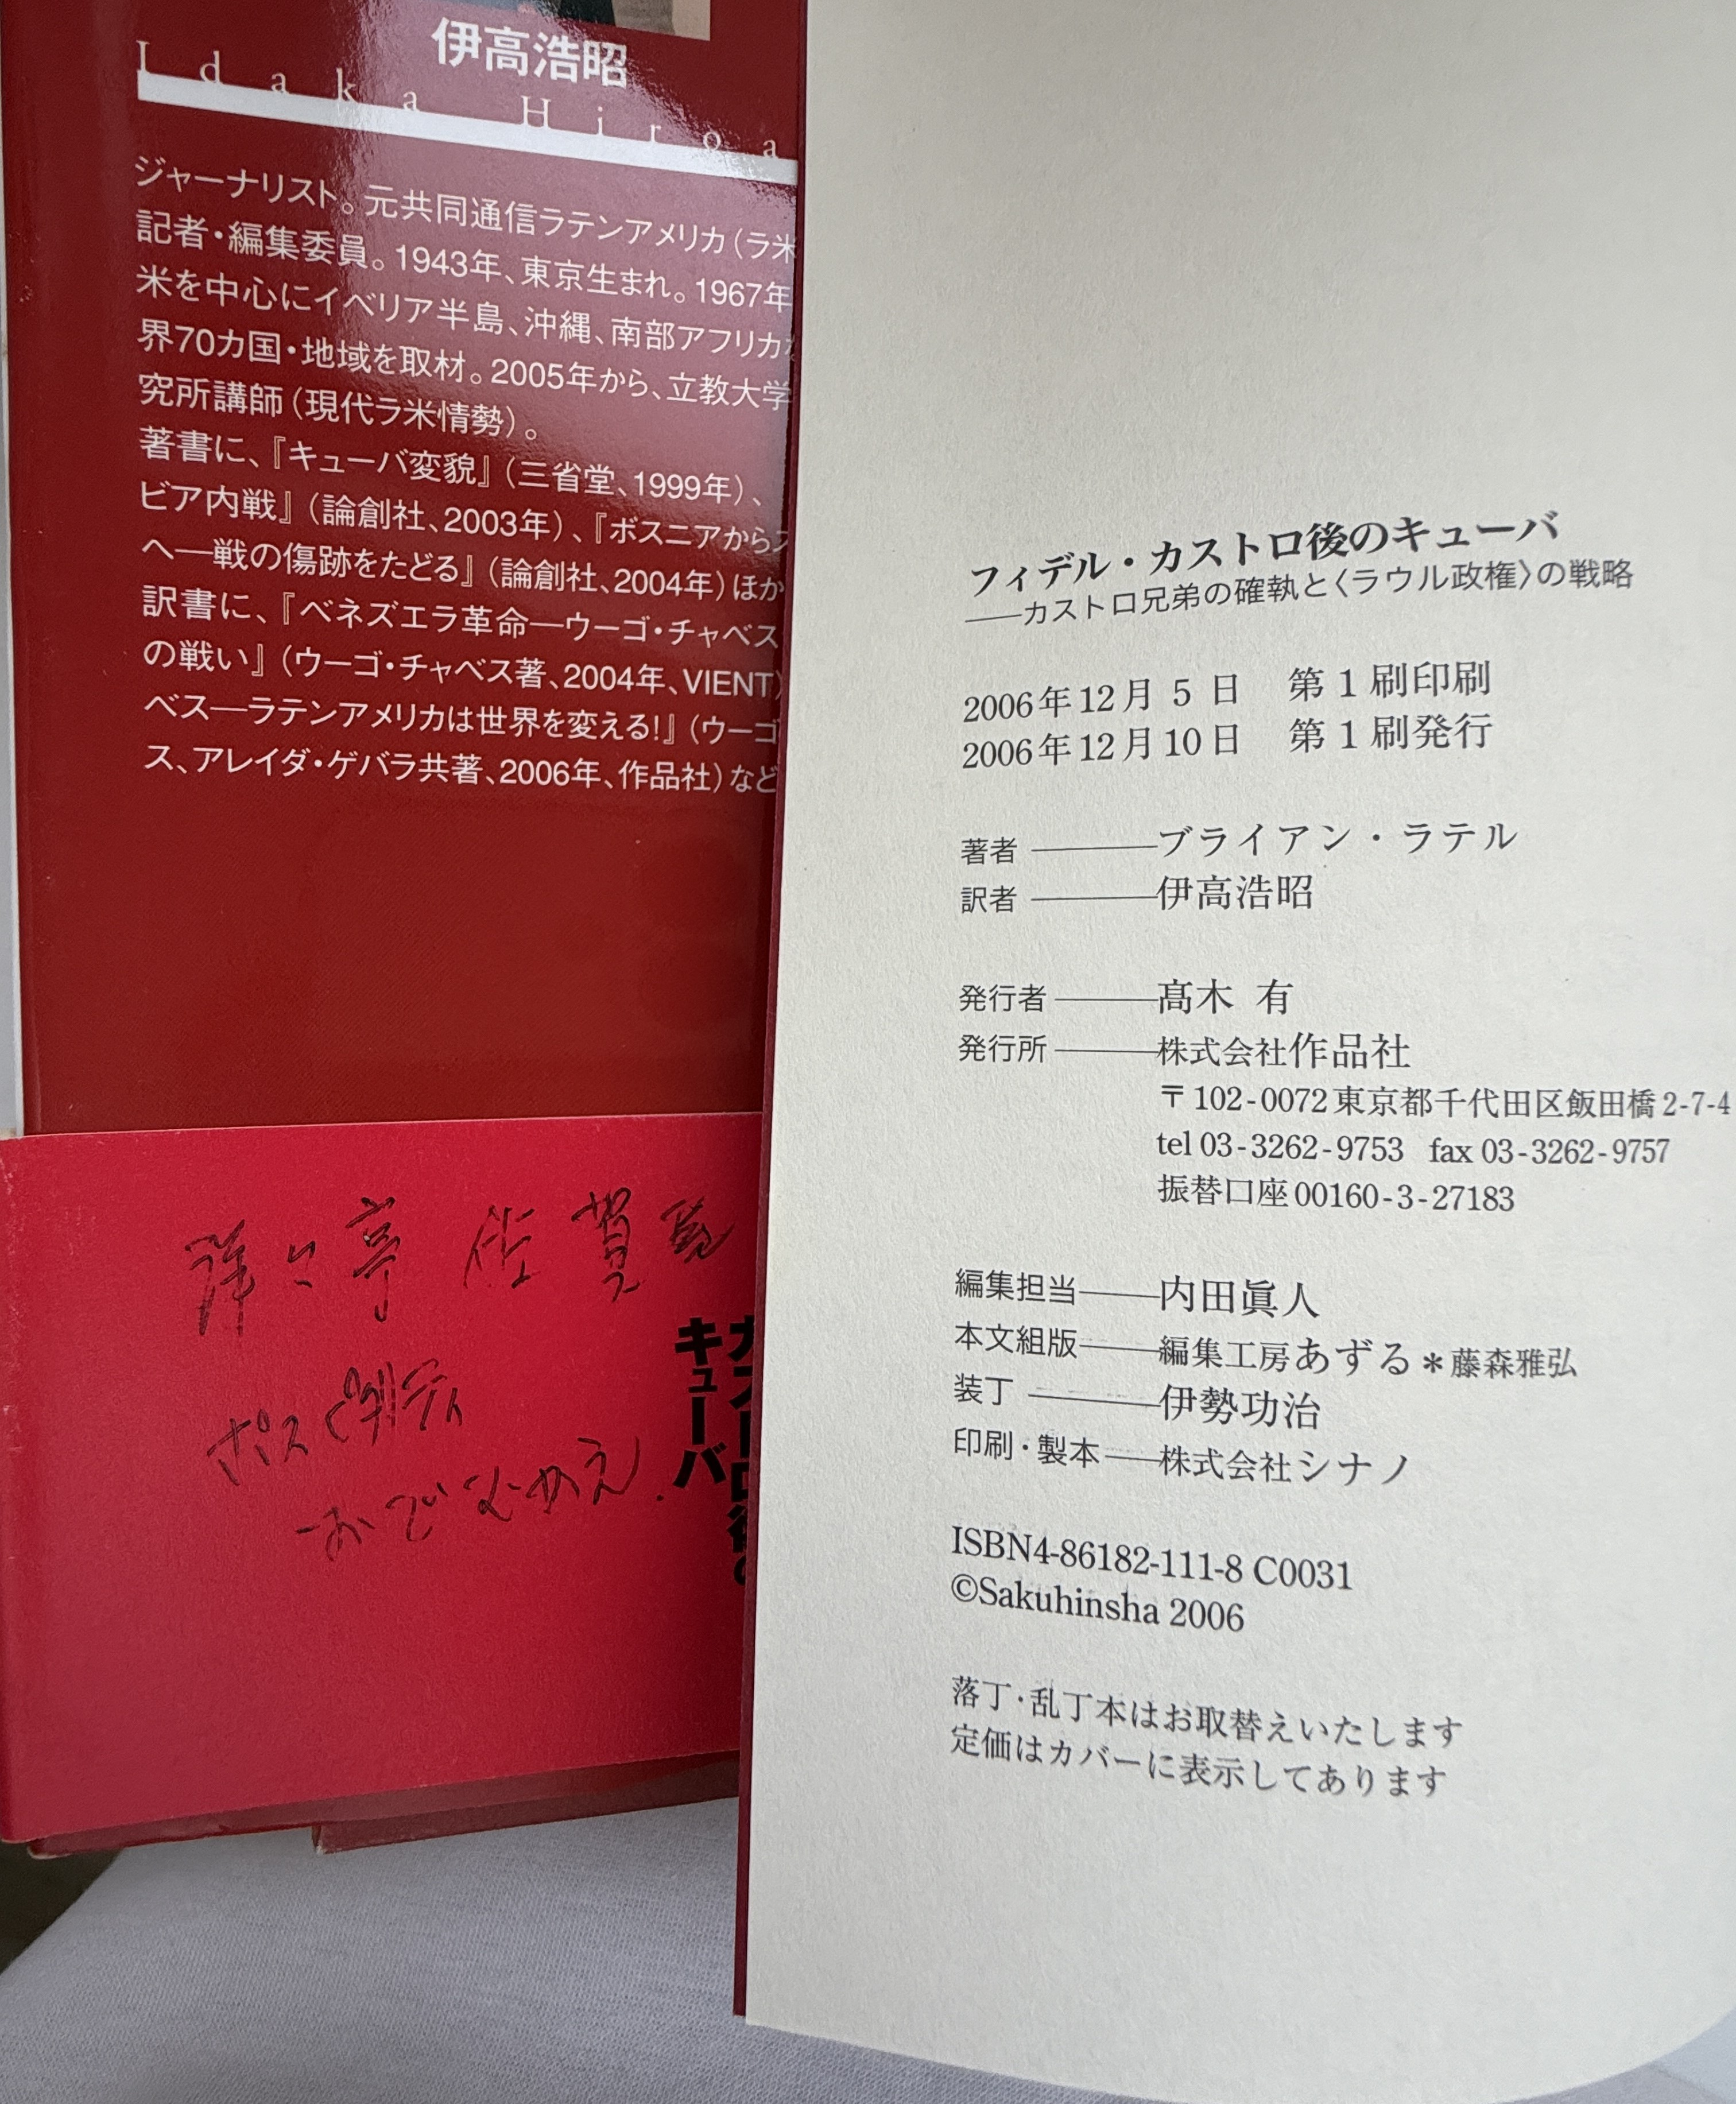 伊高浩昭
Idaka Hiroa
ジャーナリスト。元共同通信ラテンアメリカ（ラ米
記者・編集委員。1943年、東京生まれ。1967年
米を中心にイベリア半島、沖縄、南部アフリカ
界70カ国・地域を取材。2005年から、立教大学
究所講師（現代ラ米情勢）。
著書に、『キューバ変貌』（三省堂、1999年）、
ビア内戦』（論創社、2003年）、『ボスニアから
へ―戦の傷跡をたどる』（論創社、2004年）ほか
訳書に、『ベネズエラ革命―ウーゴ・チャベス
の戦い』（ウーゴ・チャベス著、2004年、VIENT）
ベス―ラテンアメリカは世界を変える!』（ウーゴ
ス、アレイダ・ゲバラ共著、2006年、作品社）など
洋々亭 佐賀
ポスト
おでむかえ.
キューバ
フィデル・カストロ後のキューバ
――カストロ兄弟の確執と〈ラウル政権〉の戦略
2006年12月 5 日 第 1 刷印刷
2006年12月10日 第 1 刷発行
著者――ブライアン・ラテル
訳者――伊高浩昭
発行者――髙木 有
発行所――株式会社作品社
〒102-0072東京都千代田区飯田橋2-7-4
tel 03-3262-9753 fax 03-3262-9757
振替口座00160-3-27183
編集担当――内田眞人
本文組版――編集工房あずる＊藤森雅弘
装丁――伊勢功治
印刷・製本――株式会社シナノ
ISBN4-86182-111-8 C0031
©Sakuhinsha 2006
落丁・乱丁本はお取替えいたします
定価はカバーに表示してあります